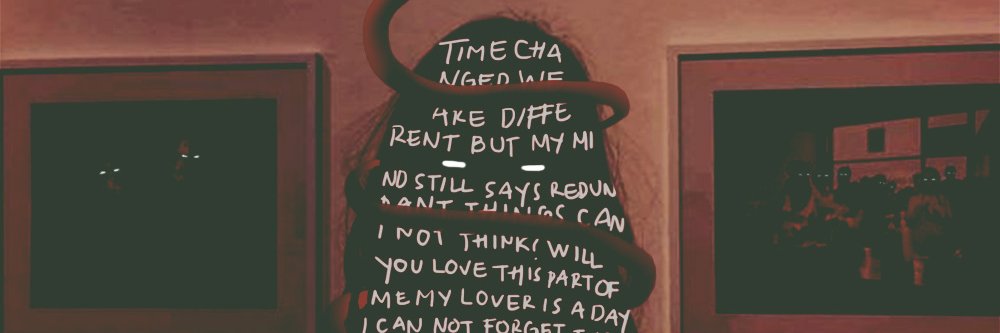 TIME CHA
NGED WE
ARE DIFFE
RENT BUT MY MI
ND STILL SAYS REDUN
DANT THINGS CAN
I NOT THINK? WILL
YOU LOVE THIS PART OF
ME MY LOVER IS A DAY
I CAN NOT FORGET